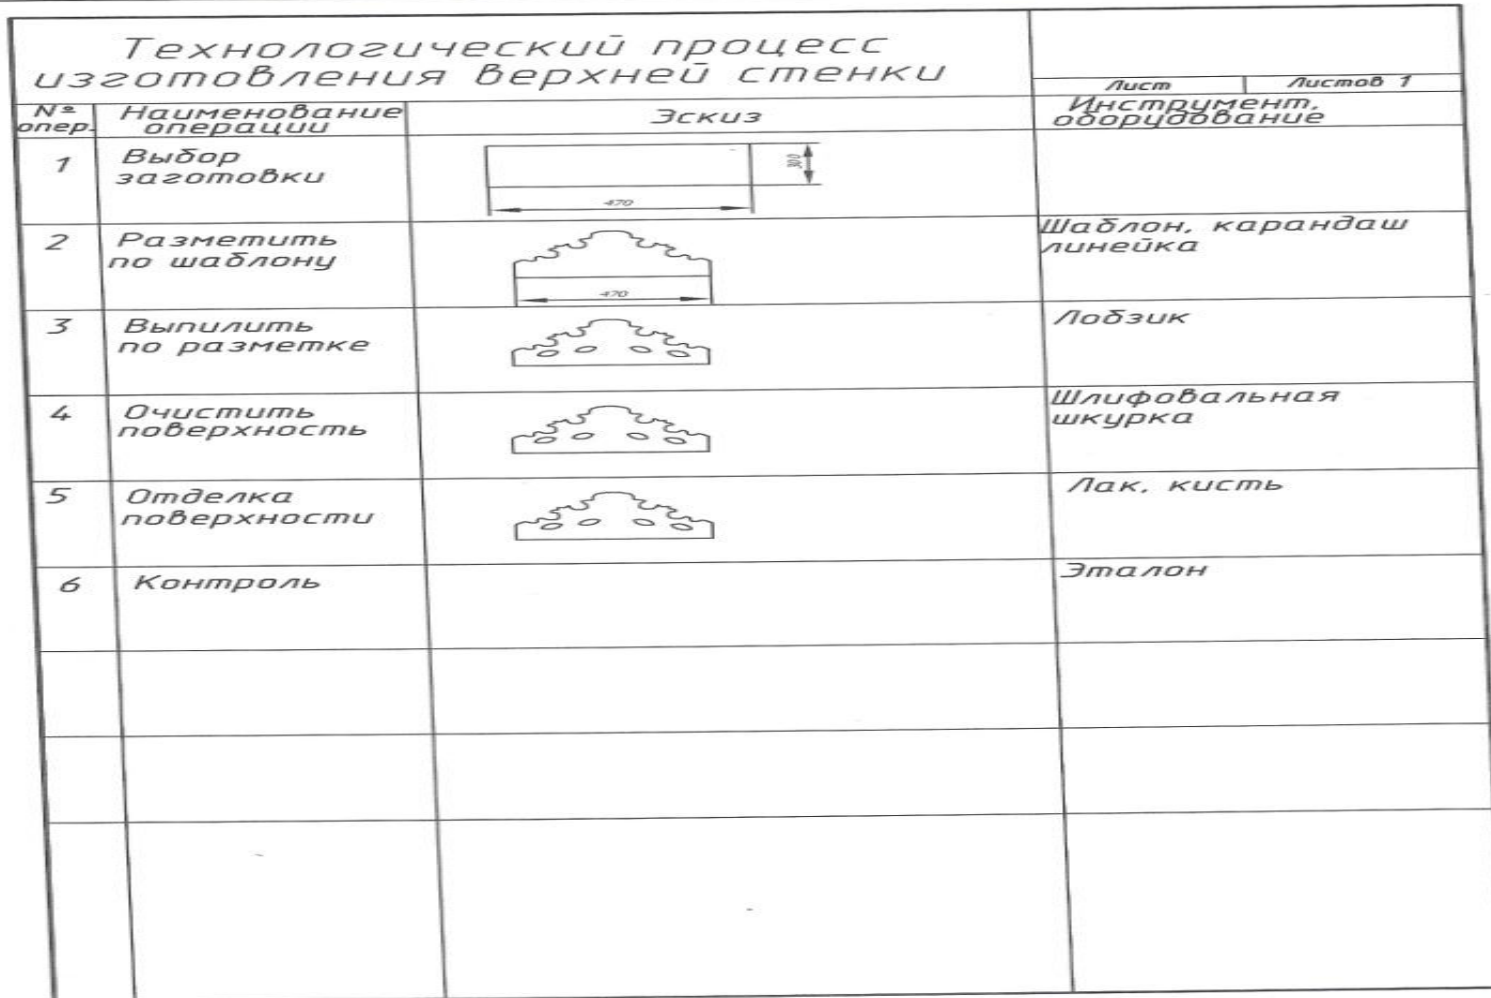 Технологический процесс
изготовления верхней стенки
Лист
Листов 1
№
опер.
Наименование
операции
Эскиз
Инструмент,
оборудование
1
Выбор
заготовки
300
470
2
Разметить
по шаблону
470
Шаблон, карандаш
линейка
3
Выпилить
по разметке
Лобзик
4
Очистить
поверхность
Шлифовальная
шкурка
5
Отделка
поверхности
Лак, кисть
6
Контроль
Эталон